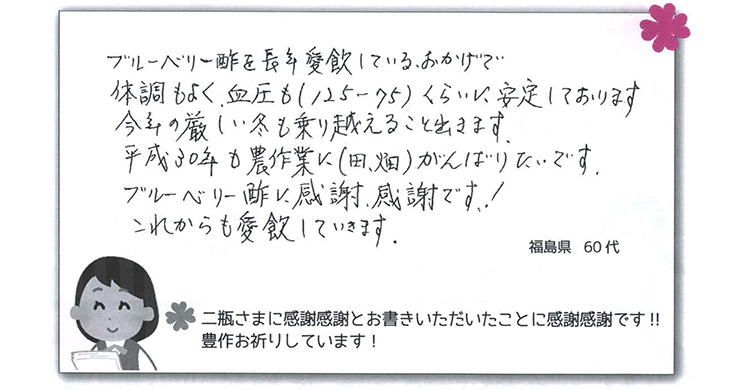 ブルーベリー酢を長年愛飲している、おかげで
体調もよく、血圧も(125-75)くらいに安定しております
今年の厳しい冬も乗り越えること出きます。
平成30年も農作業に(田、畑)がんばりたいです。
ブルーベリー酢に感謝、感謝です、!
これからも愛飲していきます。
福島県 60代
二瓶さまに感謝感謝とお書きいただいたことに感謝感謝です!!
豊作お祈りしています!